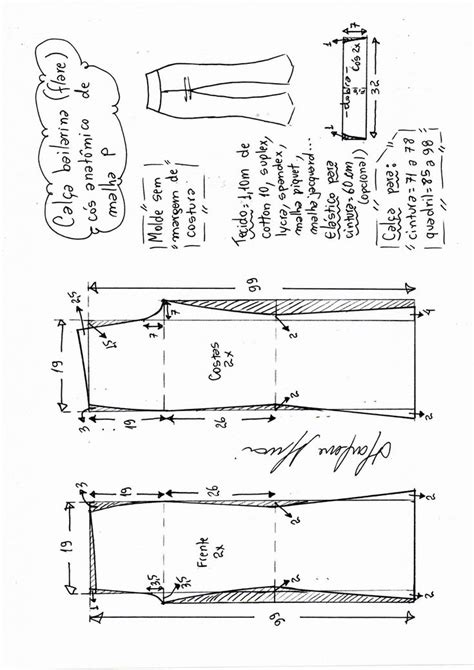 Calça bailarina (flare)
cós anatômico de
malha P
"Molde sem
margem de
costura"
Tecido=1,10m de
cotton 10, suplex,
lycra, spandex,
malha piquet,
malha jaquard...
Elástico para
cintura=60cm
(opcional)
Calça para:
cintura=71 a 78
quadril=85 a 98
1
dobra
cós 2x
1
32
99
2,5
1,5
7
7
19
19
26
3
2
2
4
2
Costas
2x
Marlene Mukai
3
19
26
19
2
2
2
2
1
3,5
3,5
99
Frente
2x